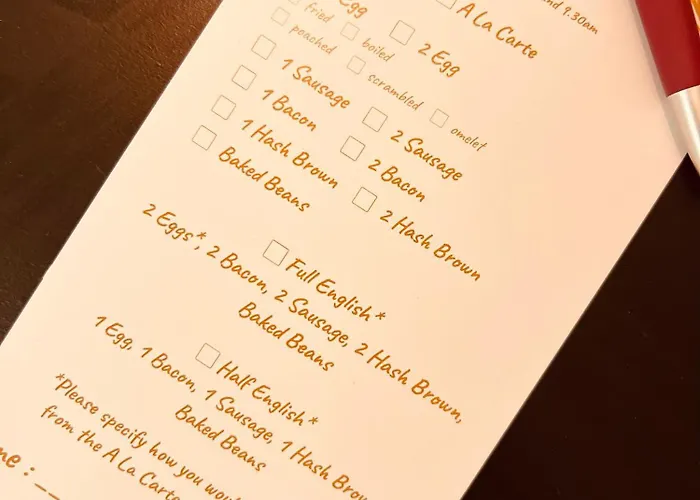 and 9.30am
A La Carte
Egg
2 Egg
fried
boiled
poached
scrambled
omelet
1 Sausage
2 Sausage
1 Bacon
2 Bacon
1 Hash Brown
2 Hash Brown
Baked Beans
Full English*
2 Eggs*, 2 Bacon, 2 Sausage, 2 Hash Brown,
Baked Beans
Half English*
1 Egg, 1 Bacon, 1 Sausage, 1 Hash Brow
Baked Beans
*Please specify how you woul
from the A La Carte
me : __